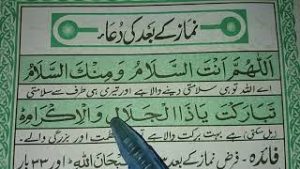 نماز کے بعد کی دُعاء
اَللّٰهُمَّ اَنْتَ السَّلَامُ وَمِنْكَ السَّلَامُ
اے اللہ تو ہی سلامتی دینے والا ہے اور تیری ہی طرف سے سلامتی
تَبَارَكْتَ يَاذَا الْجَلَالِ وَالْاِكْرَامِ
(مل سکتی) ہے بہت برکت والا ہے تو اور بزرگی والے۔
فائدہ: فرض نماز کے بعد ۳۳ سُبْحَانَ اللّٰهِ اور ۳۳ بار